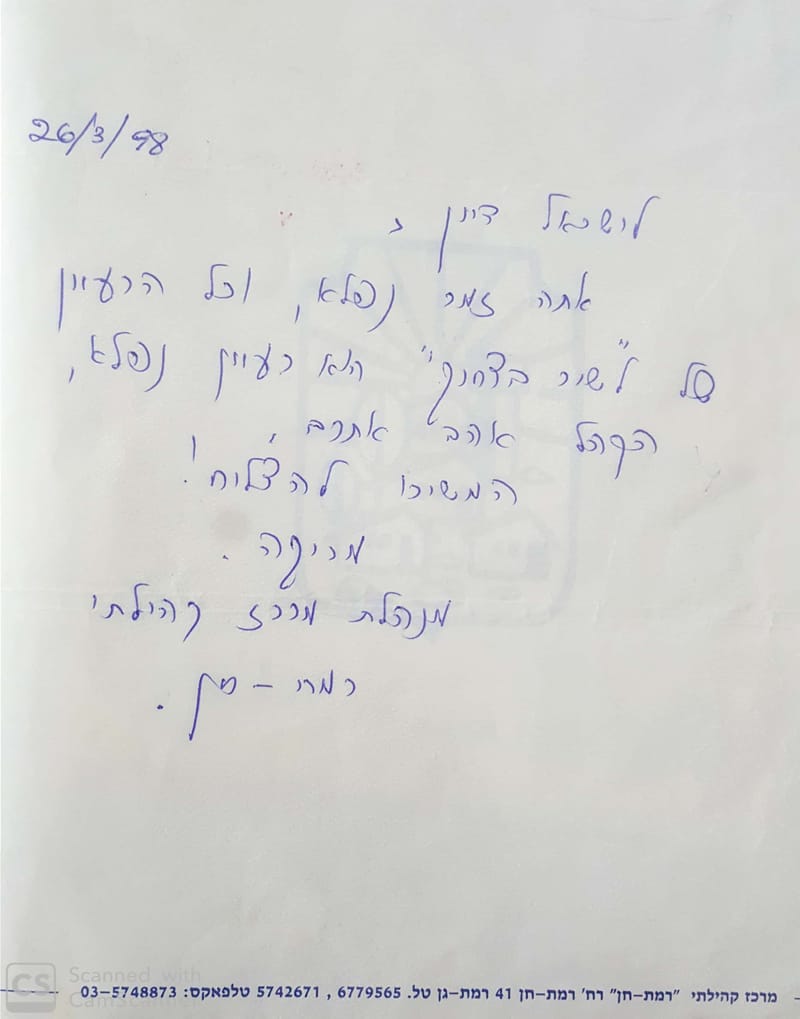 26/3/98
לישראל דיין ;
אתה זמר נפלא, וכל הרעיון
של "לשיר בצחוק" הוא רעיון נפלא,
הקהל אהב אתכם,
המשיכו להצליח!
מריקה.
מנהלת מרכז קהילתי
רמת-חן.
מרכז קהילתי "רמת-חן" רח' רמת-חן 41 רמת-גן טל. 6779565 , 5742671 טלפאקס: 03-5748873
CS Scanned with
CamScanner